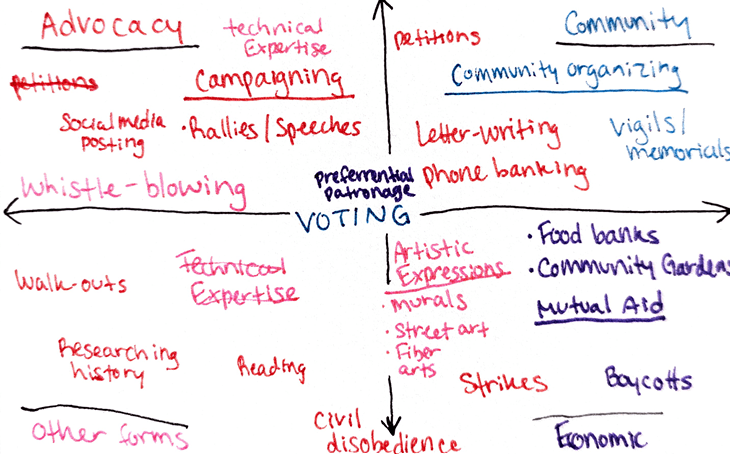 Advocacy
technical
Expertise
petitions
Campaigning
Social media
posting
• Rallies / Speeches
Whistle-blowing
petitions
Community
Community organizing
Letter-writing
vigils/
memorials
phone banking
preferrential
patronage
VOTING
Walk-outs
Technical
Expertise
Researching
history
Reading
Other forms
Civil
disobedience
Artistic
Expressions
• Murals
• Street art
• Fiber
arts
• Food banks
• Community Gardens
Mutual Aid
Strikes
Boycotts
Economic